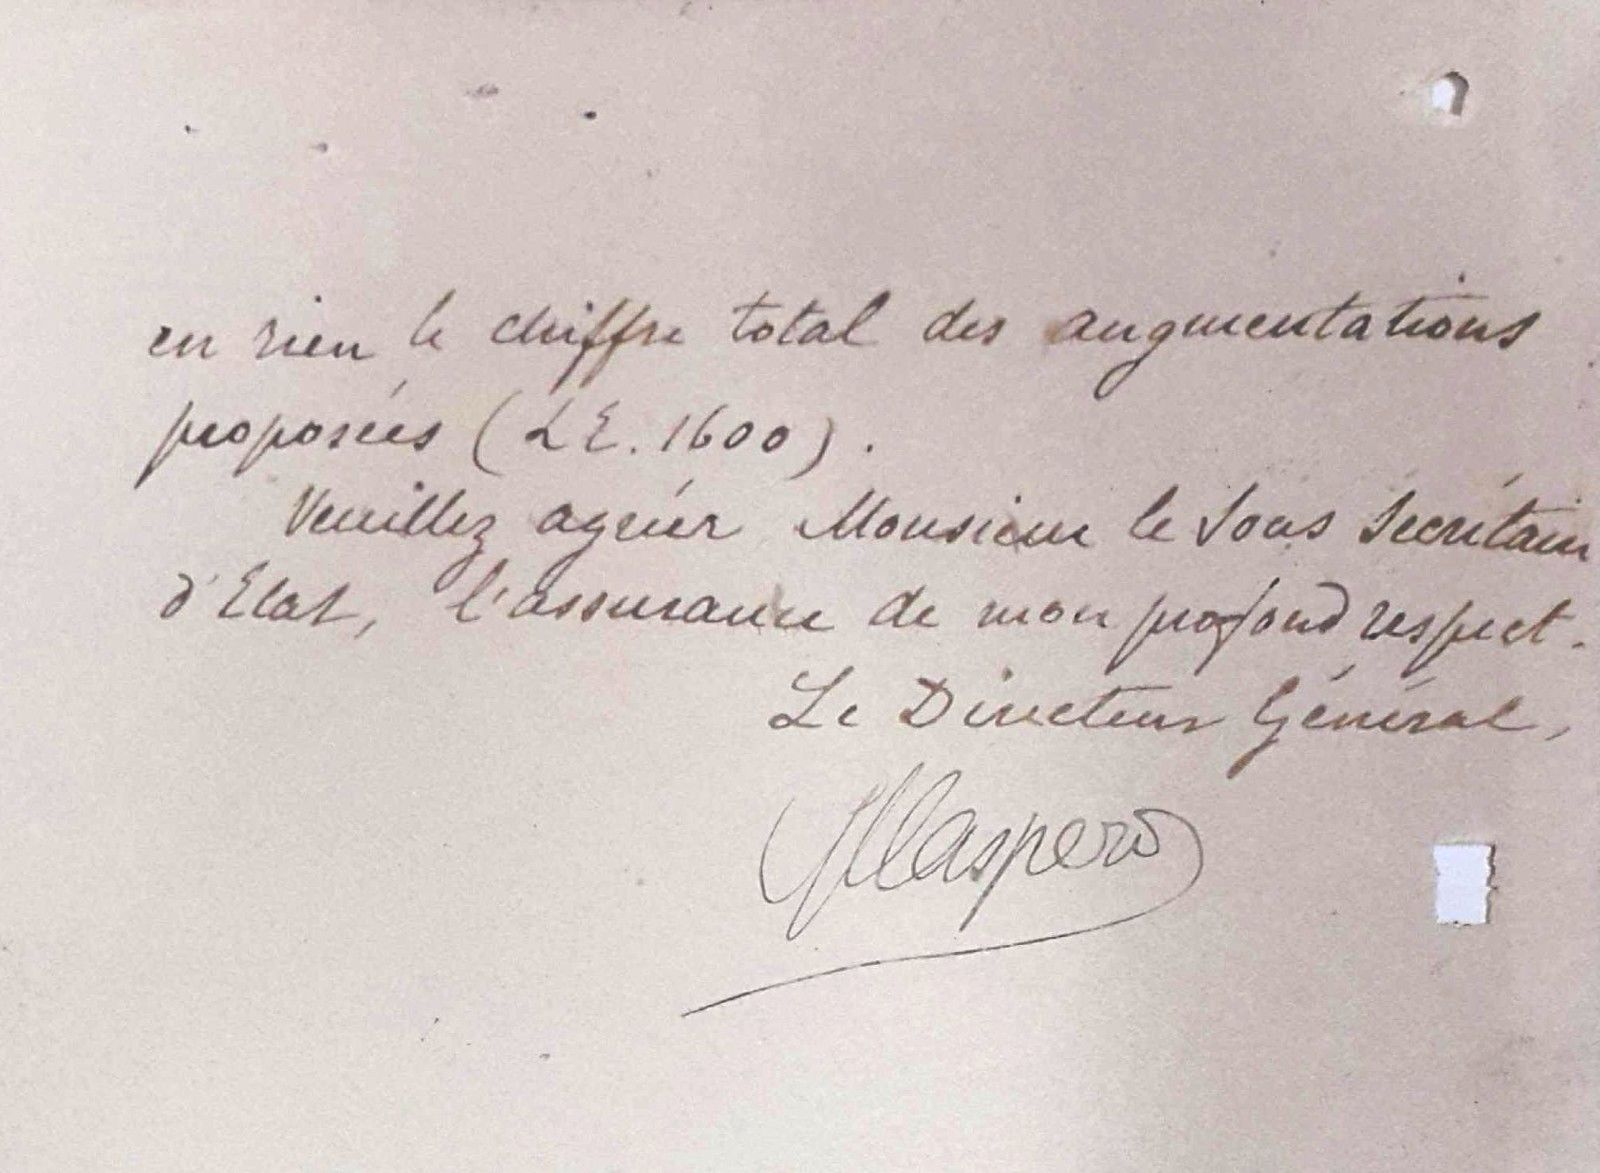 en rien le chiffre total des augmentations
proposées (LE. 1600).
Veuillez agréer Monsieur le Sous Secrétaire
d'Etat, l'assurance de mon profond respect.
Le Directeur Général,
Maspero